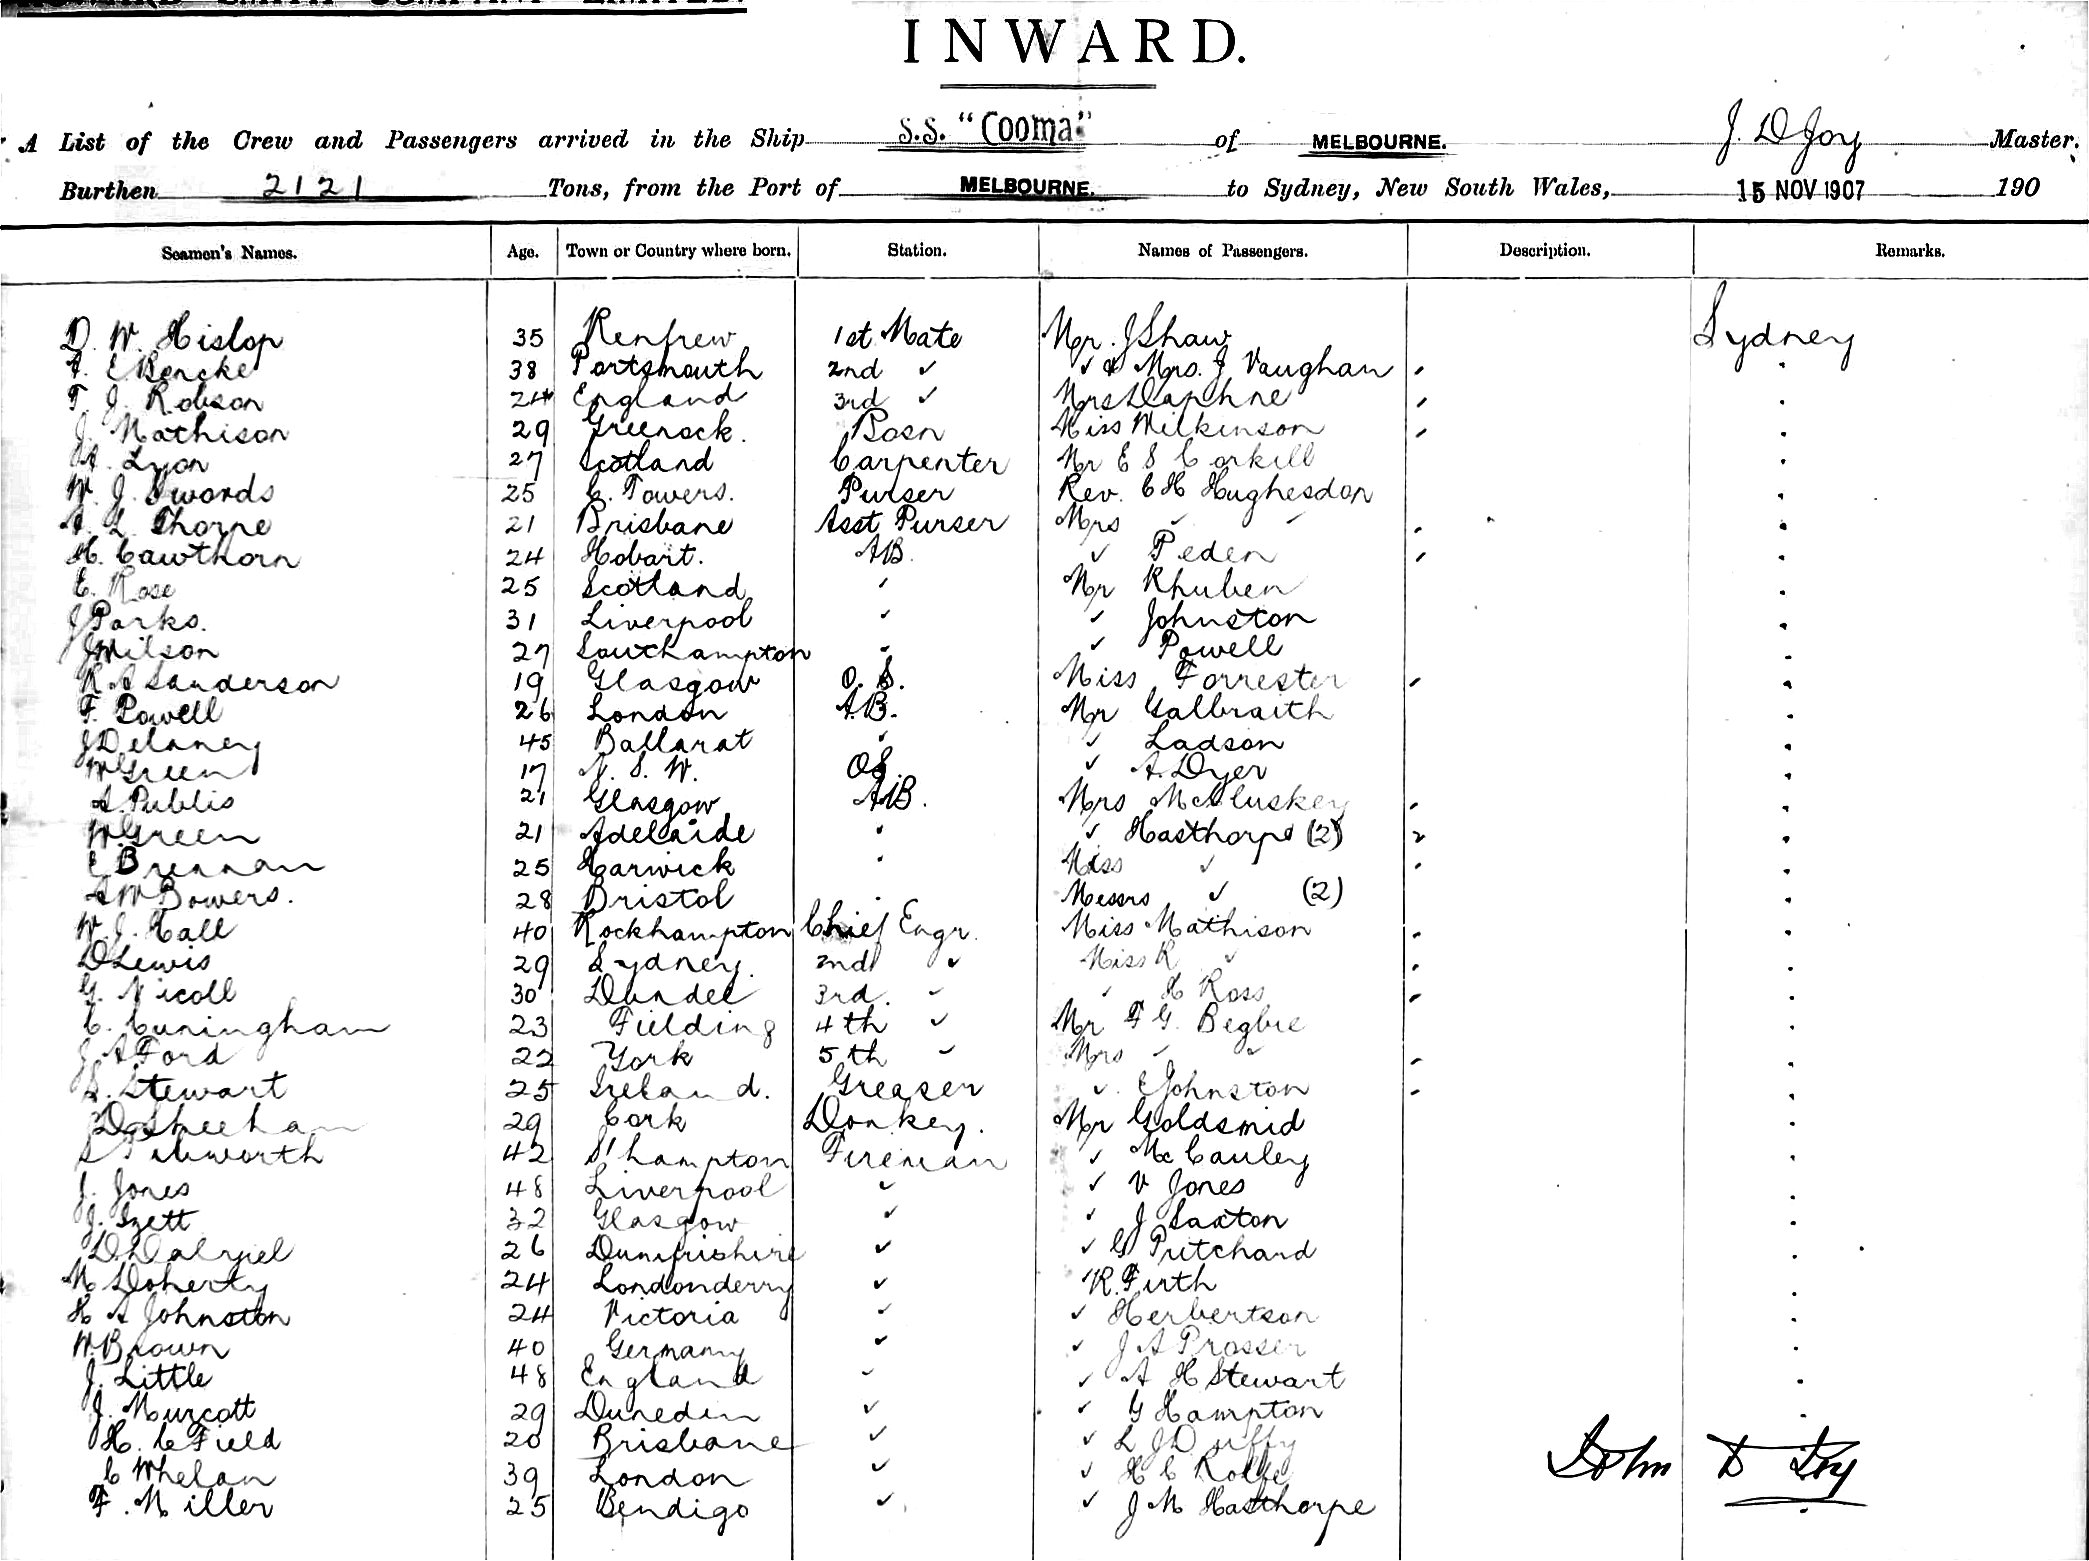 HOWARD SMITH COMPANY LIMITED.
INWARD.
A List of the Crew and Passengers arrived in the Ship S.S. "Cooma" of MELBOURNE. J. D Joy Master.
Burthen 2121 Tons, from the Port of MELBOURNE. to Sydney, New South Wales, 15 NOV 1907 190
Seamen's Names. Age. Town or Country where born. Station. Names of Passengers. Description. Remarks.
D. W. Hislop 35 Renfrew 1st Mate Mr. J Shaw Sydney
A. E Bencke 38 Portsmouth 2nd ✓ ✓ & Mrs. J Vaughan
T. J. Robson 24 England 3rd ✓ Mrs Daphne
J. Mathison 29 Greenock. Bosn Miss Wilkinson
A. Lyon 27 Scotland Carpenter Mr E S Corkill
W. J. Swords 25 C. Towers. Purser Rev. C H Hughesdon
A. L. Thorpe 21 Brisbane Asst Purser Mrs ✓ ✓
H. Cawthorn 24 Hobart. AB. ✓ Peden
E. Rose 25 Scotland ✓ Mr Khuben
J Parks. 31 Liverpool ✓ ✓ Johnston
J Wilson 27 Southampton ✓ ✓ Powell
R A Sanderson 19 Glasgow O. S. Miss Forrester
F. Powell 26 London A.B. Mr Galbraith
J Delaney 45 Ballarat ✓ ✓ Ladson
W Green 17 N. S. W. OS. ✓ A. Dyer
A. Publis 21 Glasgow AB. Mrs McCluskey
W. Green 21 Adelaide ✓ ✓ Hasthorpe (2) 2
E Brennan 25 Harwick ✓ Miss ✓
A W Bowers. 28 Bristol Messrs ✓ (2)
W. J. Hall 40 Rockhampton Chief Engr. Miss Mathison
D Lewis 29 Sydney. 2nd ✓ Miss R ✓
G. Nicoll 30 Dundee 3rd. ✓ ✓ H Ross
C. Cuningham 23 Fielding 4th ✓ Mr F G. Begbie
J A Ford 22 York 5th ✓ Mrs ✓ ✓
S. Stewart 25 Ireland. Greaser ✓ E Johnston
D Sheehan 29 Cork Donkey. Mr Goldsmid
S 42 S'hampton Fireman ✓ McCauley
J. Jones 48 Liverpool ✓ ✓ V Jones
J. Izett 32 Glasgow ✓ ✓ J Saxton
D. Dalziel 26 Dumfrishire ✓ ✓ G Pritchard
M Doherty 24 Londonderry ✓ R. Firth
H A Johnston 24 Victoria ✓ ✓ Herbertson
W Brown 40 Germany ✓ ✓ J A Prosser
J. Little 48 England ✓ ✓ A H Stewart
J. Murcott 29 Dunedin ✓ ✓ G Hampton
H. C Field 20 Brisbane ✓ ✓ L J Duffy
C Whelan 39 London ✓ ✓ H C Rolfe
F. Miller 25 Bendigo ✓ ✓ J M Hasthorpe
John D Joy